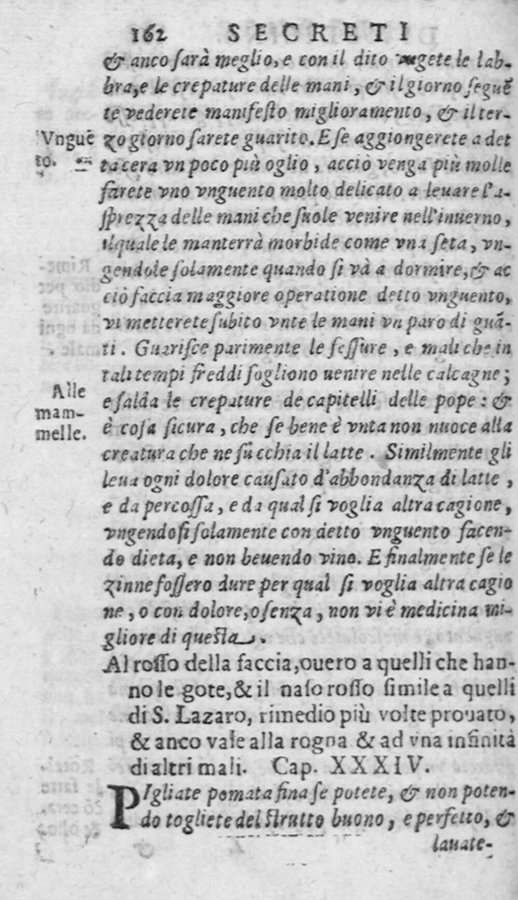 162 SECRETI
& anco sarà meglio, e con il dito vngete le lab-
bra, e le crepature delle mani, & il giorno seguē
te vederete manifesto miglioramento, & il ter-
Vnguē
to.
zo giorno sarete guarito. E se aggiongerete a det
ta cera vn poco più oglio, acciò venga più molle
farete vno vnguento molto delicato a leuare l'a-
sprezza delle mani che suole venire nell'inuerno,
ilquale le manterrà morbide come vna seta, vn-
gendole solamente quando si và a dormire, & ac
ciò faccia maggiore operatione detto vnguento,
vi metterete subito vnte le mani vn paro di guā-
ti. Guarisce parimente le fessure, e mali che in
tali tempi freddi sogliono uenire nelle calcagne;
Alle
mam-
melle.
e salda le crepature de capitelli delle pope: &
è cosa sicura, che se bene è vnta non nuoce alla
creatura che ne succhia il latte. Similmente gli
leua ogni dolore causato d'abbondanza di latte,
e da percossa, e da qual si voglia altra cagione,
vngendosi solamente con detto vnguento facen-
do dieta, e non beuendo vino. E finalmente se le
zinne fossero dure per qual si voglia altra cagio
ne, o con dolore, o senza, non vi è medicina mi-
gliore di questa.
Al rosso della faccia, ouero a quelli che han-
no le gote, & il naso rosso simile a quelli
di S. Lazaro, rimedio più volte prouato,
& anco vale alla rogna & ad vna infinità
di altri mali. Cap. XXXIV.
PIgliate pomata fina se potete, & non poten-
do togliete del strutto buono, e perfetto, &
lauate-